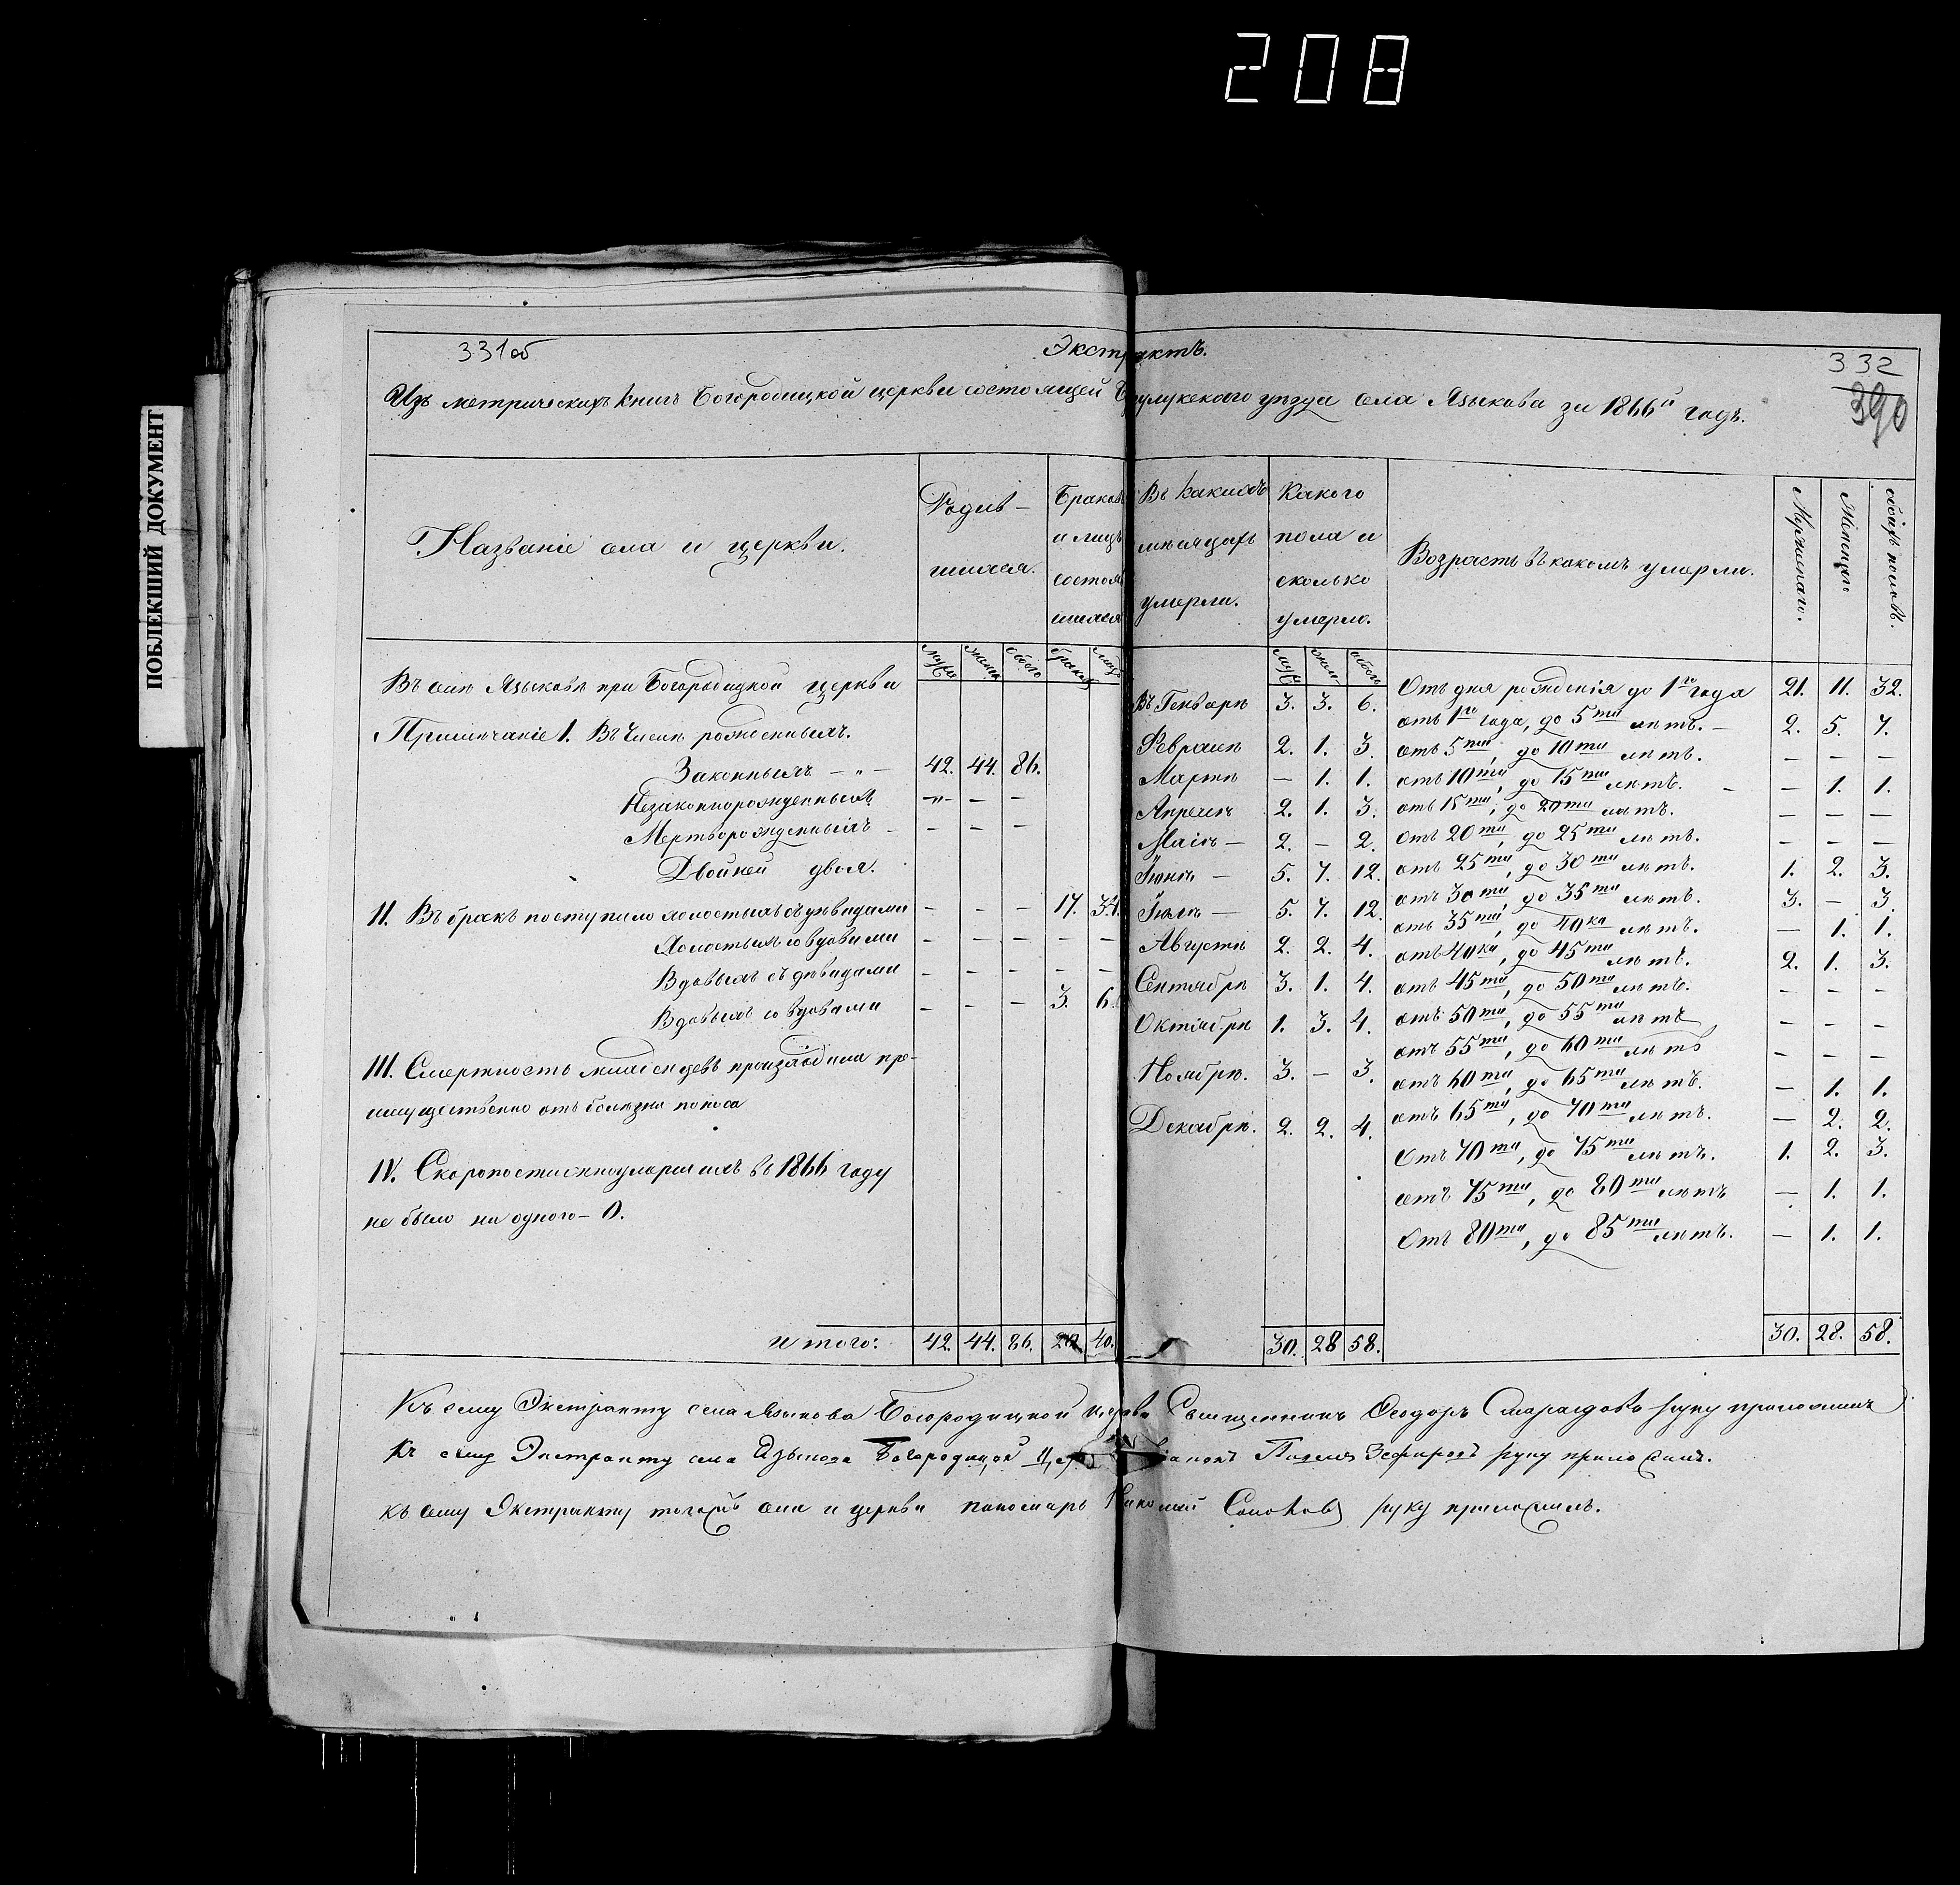 208
ПОБЛЕКШИЙ ДОКУМЕНТ
331об
332
390
Экстрактъ.
Изъ метрическихъ книгъ Богородицкой церкви состоящей Бузулукскаго уѣзда села Языкова за 1866й годъ.
Названіе села и церкви.
Родив-
шихся.
Браковъ
и лицъ
состояв
шихся
Въ какихъ
мѣсяцахъ
умерли.
Какого
пола и
сколько
умерло.
Возрастъ въ какомъ умерли.
Мужескаго.
Женскаго
обоихъ половъ.
муж женск обоего браковъ лицъ
муж жен. обоего
Въ селѣ Языковѣ при Богородицкой церкви
Примѣчаніе 1. Въ числѣ рожденныхъ.
Законныхъ - „ - 42. 44. 86.
Незаконнорожденныхъ -„- - -
Мертворожденныхъ - - - -
Двойней двоя.
II. Въ бракъ поступило холостыхъ съ дѣвицами - - - 17. 34.
Холостыхъ со вдовами - - - - -
Вдовыхъ съ дѣвицами - - - - -
Вдовыхъ со вдовами - - - 3. 6.
III. Смертность младенцевъ происходила пре-
имущественно отъ болѣзни поноса
IV. Скоропостижноумершихъ въ 1866 году
не было ни одного - 0.
Итого: 42. 44. 86. 20 40.
Въ Генварѣ 3. 3. 6.
Февралѣ 2. 1. 3.
Мартѣ — 1. 1.
Апрѣлѣ 2. 1. 3.
Маіѣ — 2. - 2.
Іюнѣ — 5. 7. 12.
Іюлѣ — 5. 7. 12.
Августѣ 2. 2. 4.
Сентябрѣ 3. 1. 4.
Октябрѣ 1. 3. 4.
Ноябрѣ. 3. - 3.
Декабрѣ. 2. 2. 4.
30. 28 58.
Отъ дня рожденія до 1го года 21. 11. 32.
отъ 1го года, до 5ти лѣтъ. - 2. 5. 7.
отъ 5ти, до 10ти лѣтъ. — — —
отъ 10ти, до 15ти лѣтъ. - — 1. 1.
отъ 15ти, до 20ти лѣтъ. — — —
отъ 20ти, до 25ти лѣтъ. — — —
отъ 25ти, до 30ти лѣтъ. 1. 2. 3.
отъ 30ти, до 35ти лѣтъ. 3. — 3.
отъ 35ти, до 40ка лѣтъ. — 1. 1.
отъ 40ка, до 45ти лѣтъ. 2. 1. 3.
отъ 45ти, до 50ти лѣтъ. — — —
отъ 50ти, до 55ти лѣтъ — — —
отъ 55ти, до 60ти лѣтъ — — —
отъ 60ти, до 65ти лѣтъ. — 1. 1.
отъ 65ти, до 70ти лѣтъ. — 2. 2.
Отъ 70ти, до 75ти лѣтъ. 1. 2. 3.
отъ 75ти, до 80ти лѣтъ — 1. 1.
Отъ 80ти, до 85ти лѣтъ. — 1. 1.
30. 28. 58.
Къ сему Экстракту села Языкова Богородицкой церкви Священникъ Ѳеодоръ Смарагдовъ руку приложилъ
Къ сему Экстракту села Языкова Богородицкой Павелъ Зефировъ руку приложилъ.
Къ сему Экстракту тогожъ села и церкви пономарь Николай руку приложилъ.